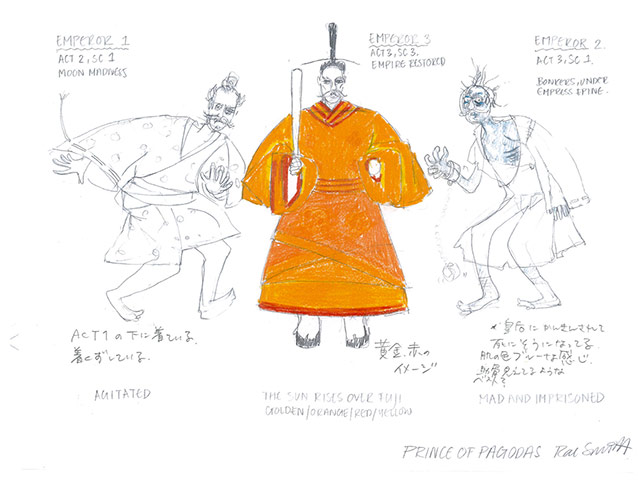 EMPEROR 1
ACT 2, SC 1
MOON MADNESS
EMPEROR 3
ACT 3, SC 3.
EMPIRE RESTORED
EMPEROR 2.
ACT 3, SC 1.
BONKERS, UNDER
EMPRESS EPINE.
ACT 1の下に着ている.
着くずしている.
AGITATED
黄金、赤の
イメージ
THE SUN RISES OVER FUJI
GOLDEN/ORANGE/RED/YELLOW
皇后にかんきんされて
死にそうになってる.
肌の色ブルーな感じ.
見えてるような
MAD AND IMPRISONED
PRINCE OF PAGODAS Rae Smith